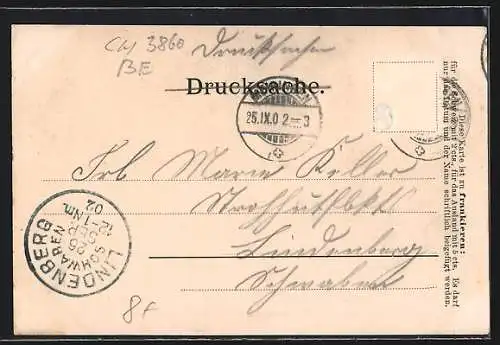 CH 3860
BE
Drucksache
Drucksache.
25.IX.02–3
Frl. Marie Keller
Strohhutfbk
Lindenberg
Schwaben
LINDENBERG
SCHWABEN
25
SEP
12-1 Nm.
02
Diese Karte ist zu frankieren:
für die Schweiz mit 2 cts., für das Ausland mit 5 cts. Es darf
nur das Datum und der Name schriftlich beigefügt werden.